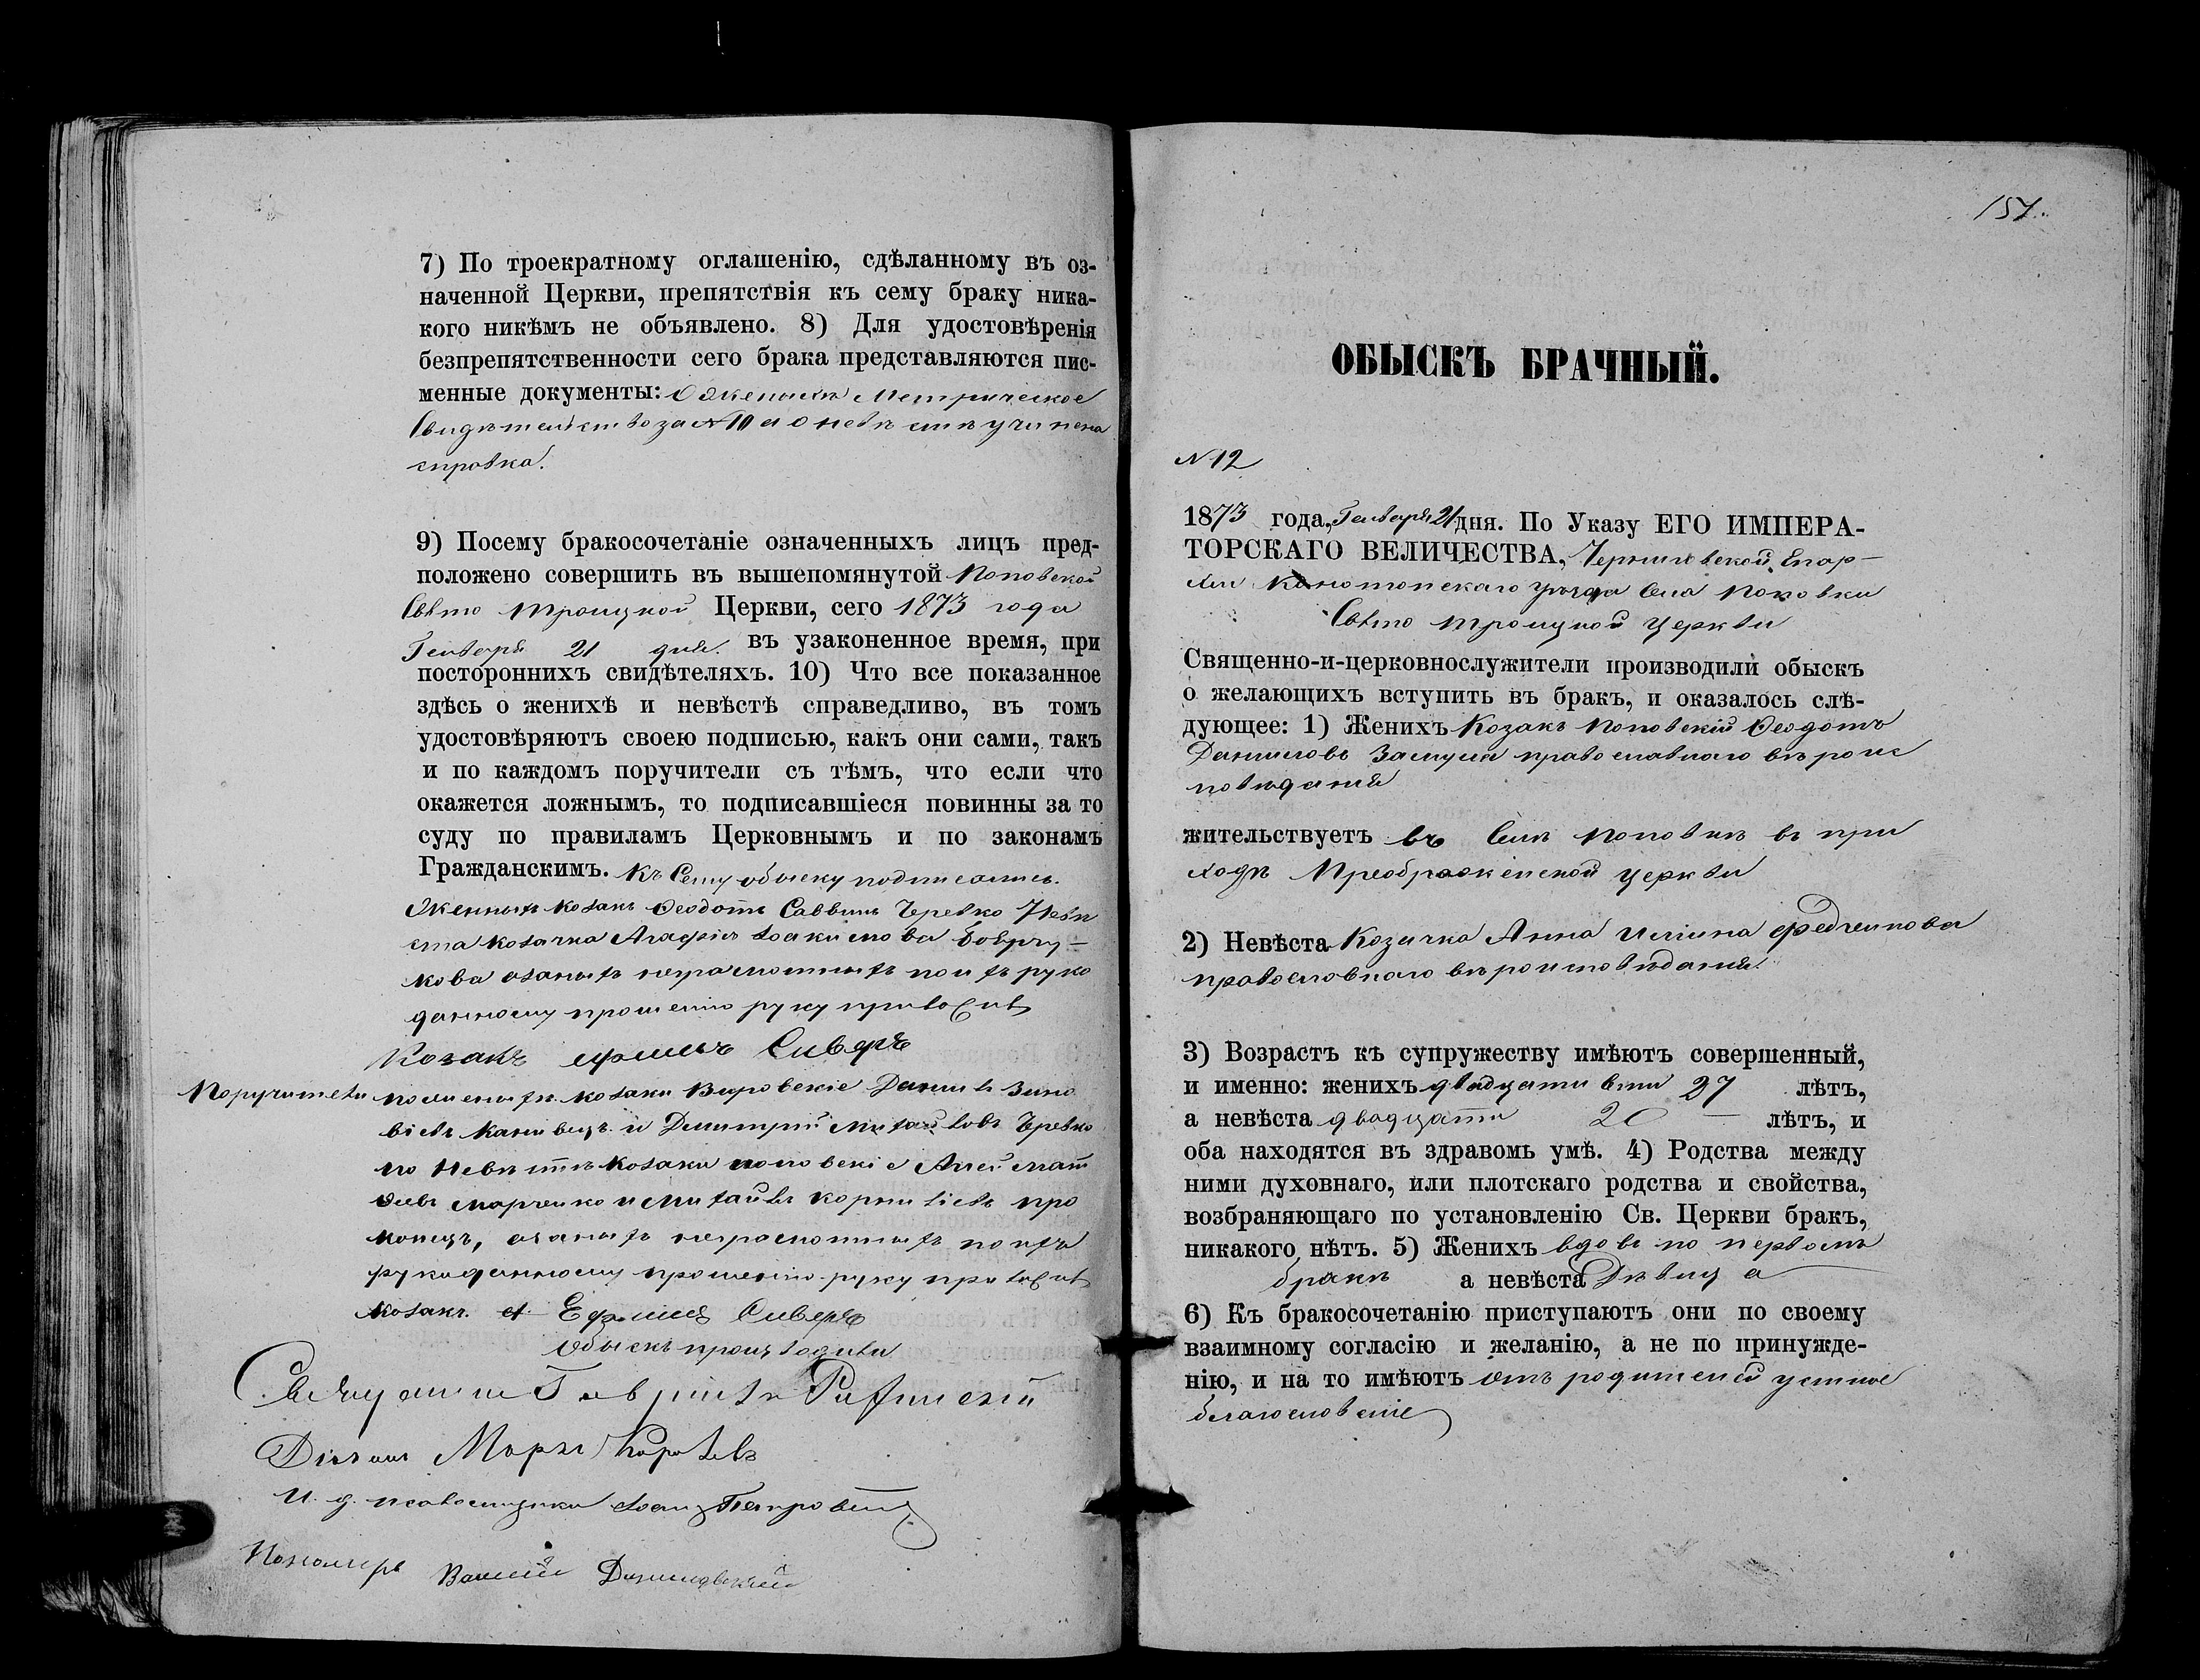 7) По троекратному оглашенію, сдѣланному въ оз-
наченной Церкви, препятствія къ сему браку ника-
кого никѣмъ не объявлено. 8) Для удостовѣренія
безпрепятственности сего брака представляются пис-
менные документы: О женихѣ Метрическое
Свидѣтельство за № 10 а о невѣстѣ учинена
справка.
9) Посему бракосочетаніе означенныхъ лицъ пред-
положено совершить въ вышепомянутой Поповской
Свято Троицкой Церкви, сего 1873 года
Генваря 21 дня. въ узаконенное время, при
постороннихъ свидѣтеляхъ. 10) Что все показанное
здѣсь о женихѣ и невѣстѣ справедливо, въ томъ
удостовѣряютъ своею подписью, какъ они сами, такъ
и по каждомъ поручители съ тѣмъ, что если что
окажется ложнымъ, то подписавшіеся повинны за то
суду по правиламъ Церковнымъ и по законамъ
Гражданскимъ. Къ Сему обыску подписались.
Женихъ козакъ Ѳеодотъ Саввинъ Черевко Невѣ
ста козачка Агафія
кова а за нихъ неграмотныхъ по ихъ руко
данному прошенію руку приложилъ
Козакъ Сиверъ
Поручители по женихѣ козаки Вировскіе Даніилъ Зино
віевъ Канивецъ и Димитрій Михайловъ Черевко
по Невѣстѣ Козаки поповскіе
Марченко и Михаилъ Корниліевъ Про
копецъ, а за нихъ неграмотныхъ по ихъ
рукоданному прошенію руку приложилъ
козакъ Сиверъ
Обыскъ производили
Священникъ Гавріилъ
Діаконъ Маркъ Королевъ
И. д. псаломщика Петровскій
Пономарь Василій
157.
ОБЫСКЪ БРАЧНЫЙ.
№ 12
1873 года, Генваря 21 дня. По Указу ЕГО ИМПЕРА-
ТОРСКАГО ВЕЛИЧЕСТВА, Черниговской Епар-
хіи Конотопскаго уѣзда Села Поповки
Свято Троицкой Церкви
Священно-и-церковнослужители производили обыскъ
о желающихъ вступить въ бракъ, и оказалось слѣ-
дующее: 1) Женихъ Козакъ Поповскій Ѳеодотъ
Даниловъ православнаго вѣроис
повѣданія
жительствуетъ въ Селѣ Поповкѣ въ при
ходѣ Преображенской церкви
2) Невѣста Козачка Анна Иліина Федченкова
православнаго вѣроисповѣданія.
3) Возрастъ къ супружеству имѣютъ совершенный,
и именно: женихъ двадцати семи 27 лѣтъ,
а невѣста двадцати 20 — лѣтъ, и
оба находятся въ здравомъ умѣ. 4) Родства между
ними духовнаго, или плотскаго родства и свойства,
возбраняющаго по установленію Св. Церкви бракъ,
никакого нѣтъ. 5) Женихъ вдовъ по первомъ
бракѣ а невѣста Дѣвица
6) Къ бракосочетанію приступаютъ они по своему
взаимному согласію и желанію, а не по принужде-
нію, и на то имѣютъ отъ родителей устное
благословеніе